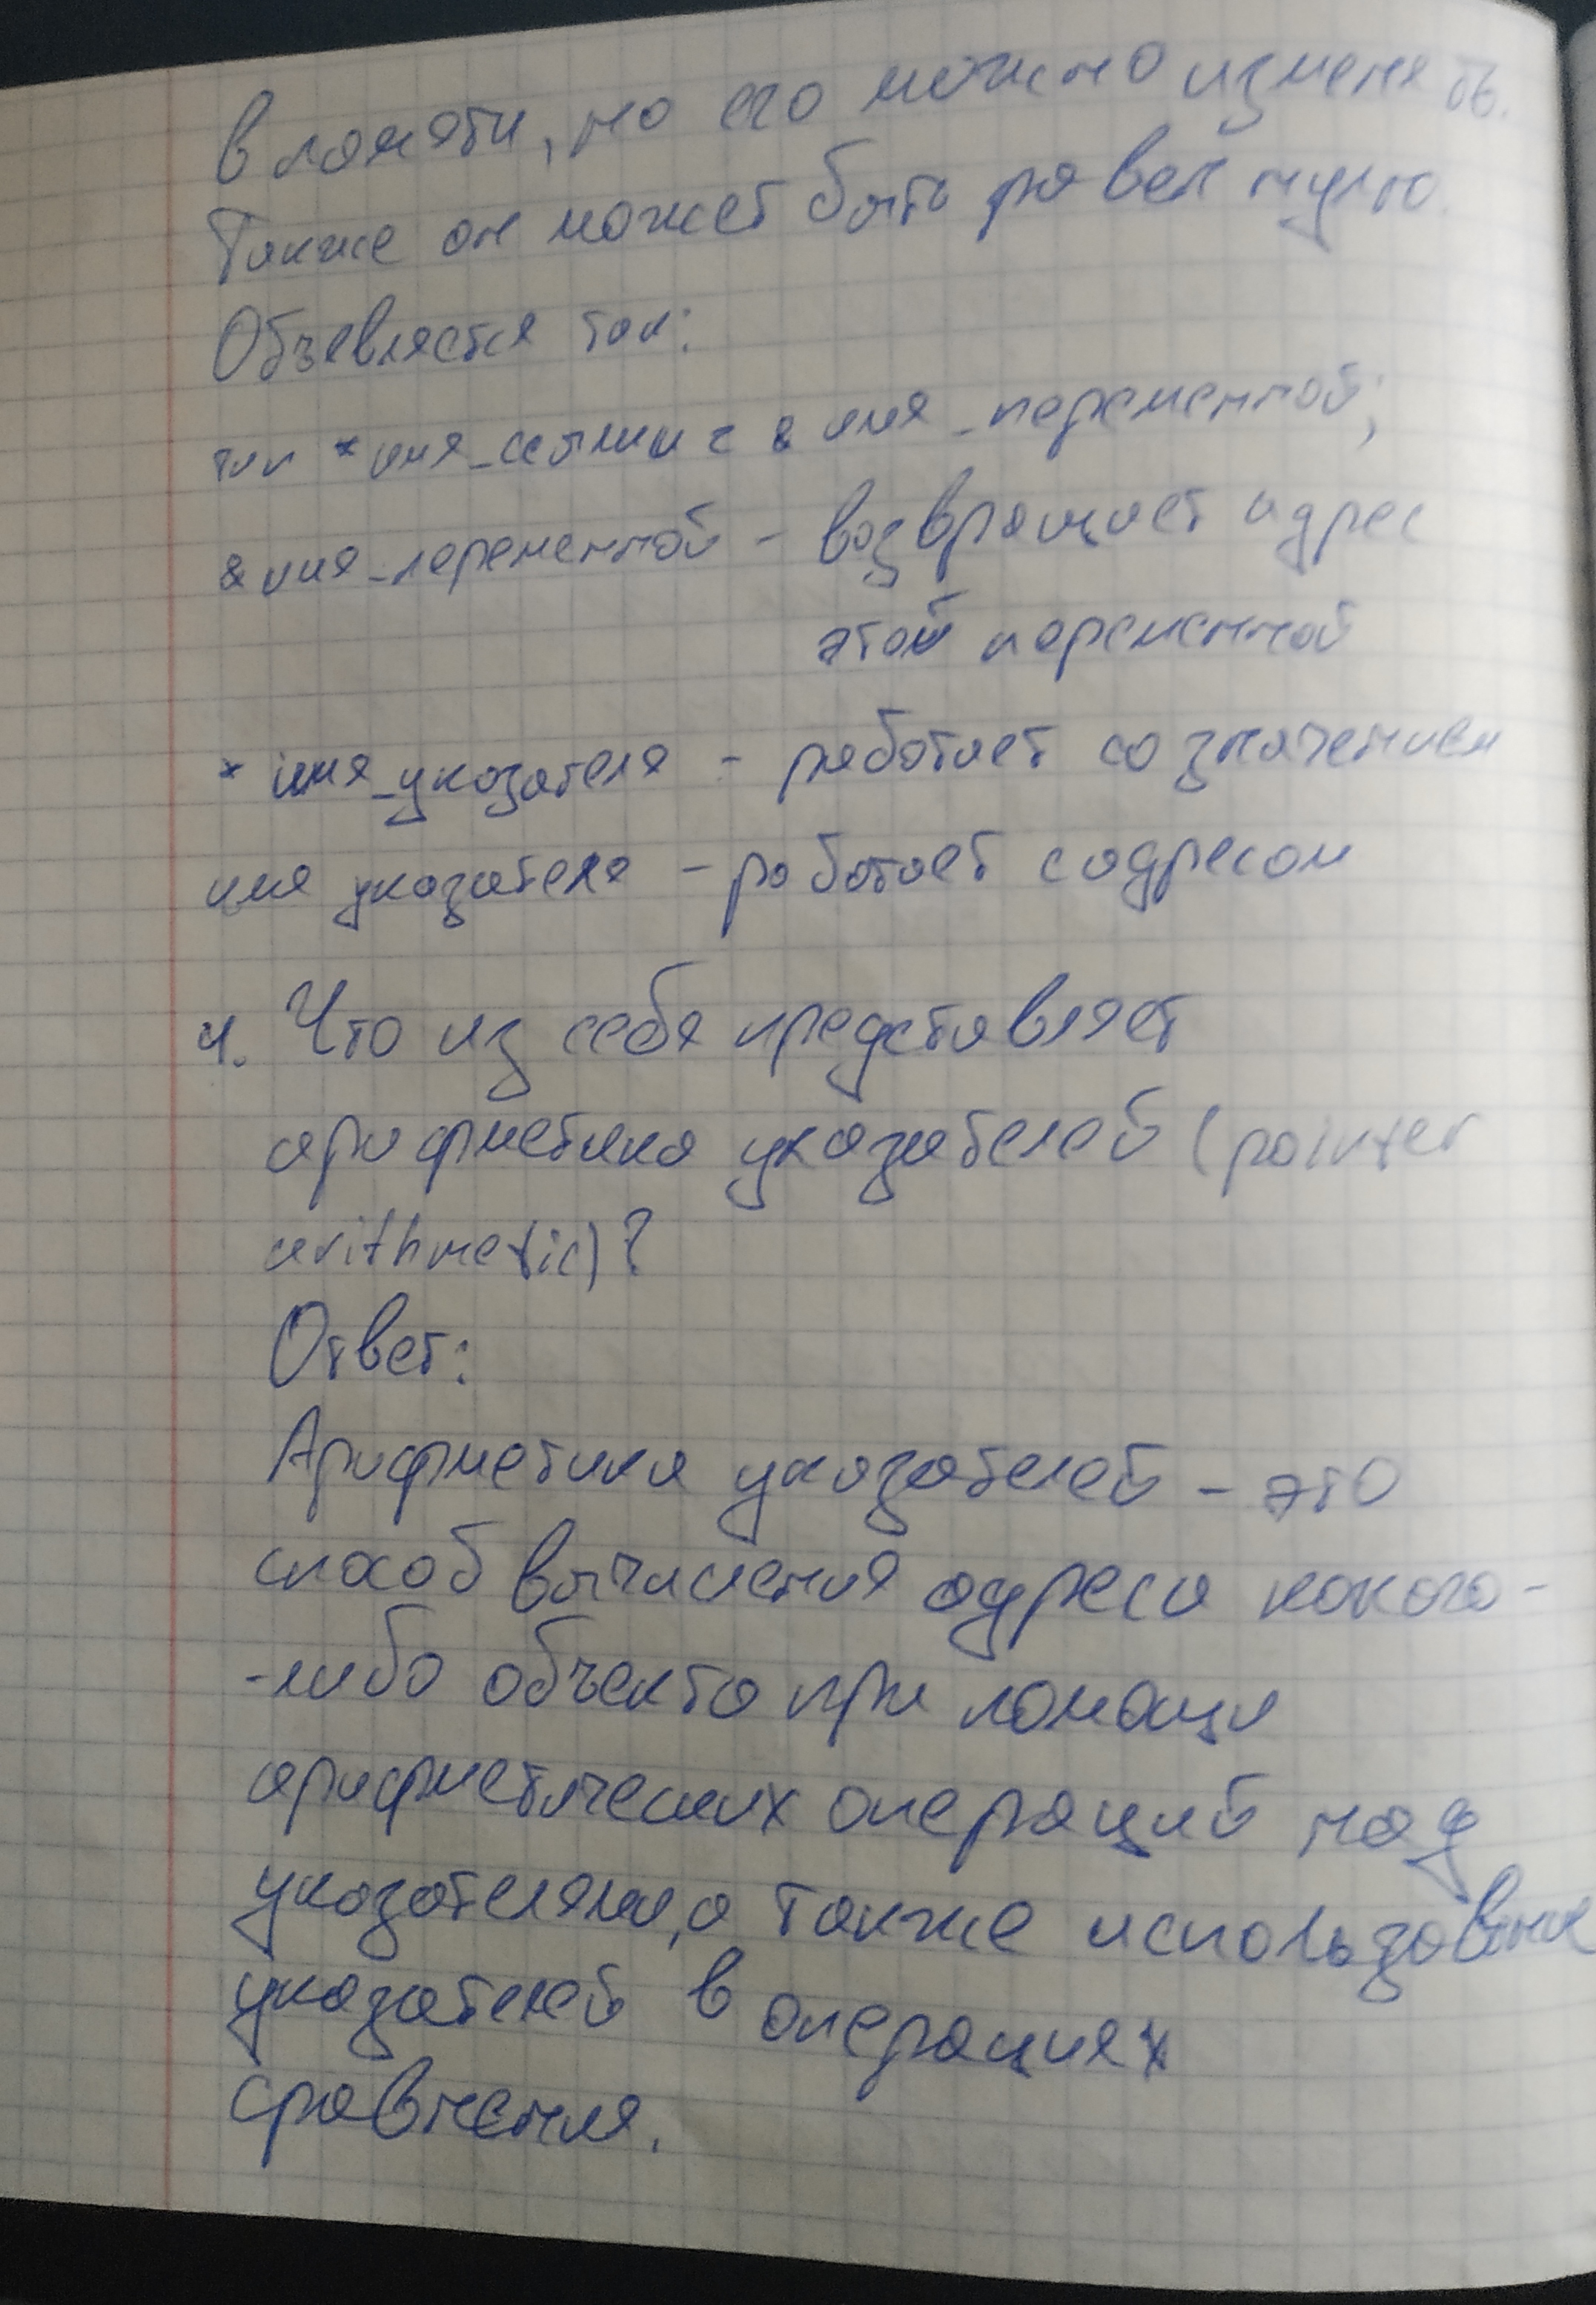 в памяти, но его можно изменять.
Также он может быть равен нулю.
Объевляется так:
тип *имя_ссылки = &имя_переменной;
&имя_переменной - возвращает адрес
этой переменной
* имя_указателя - работает со значением
имя указателя - работает с адресом
4. Что из себя представляет
арифметика указателей (pointer
arithmetic)?
Ответ:
Арифметика указателей - это
способ вычисления адреса какого-
-либо объекта при помощи
арифметических операций над
указателями, а также использование
указателей в операциях
сравнения.